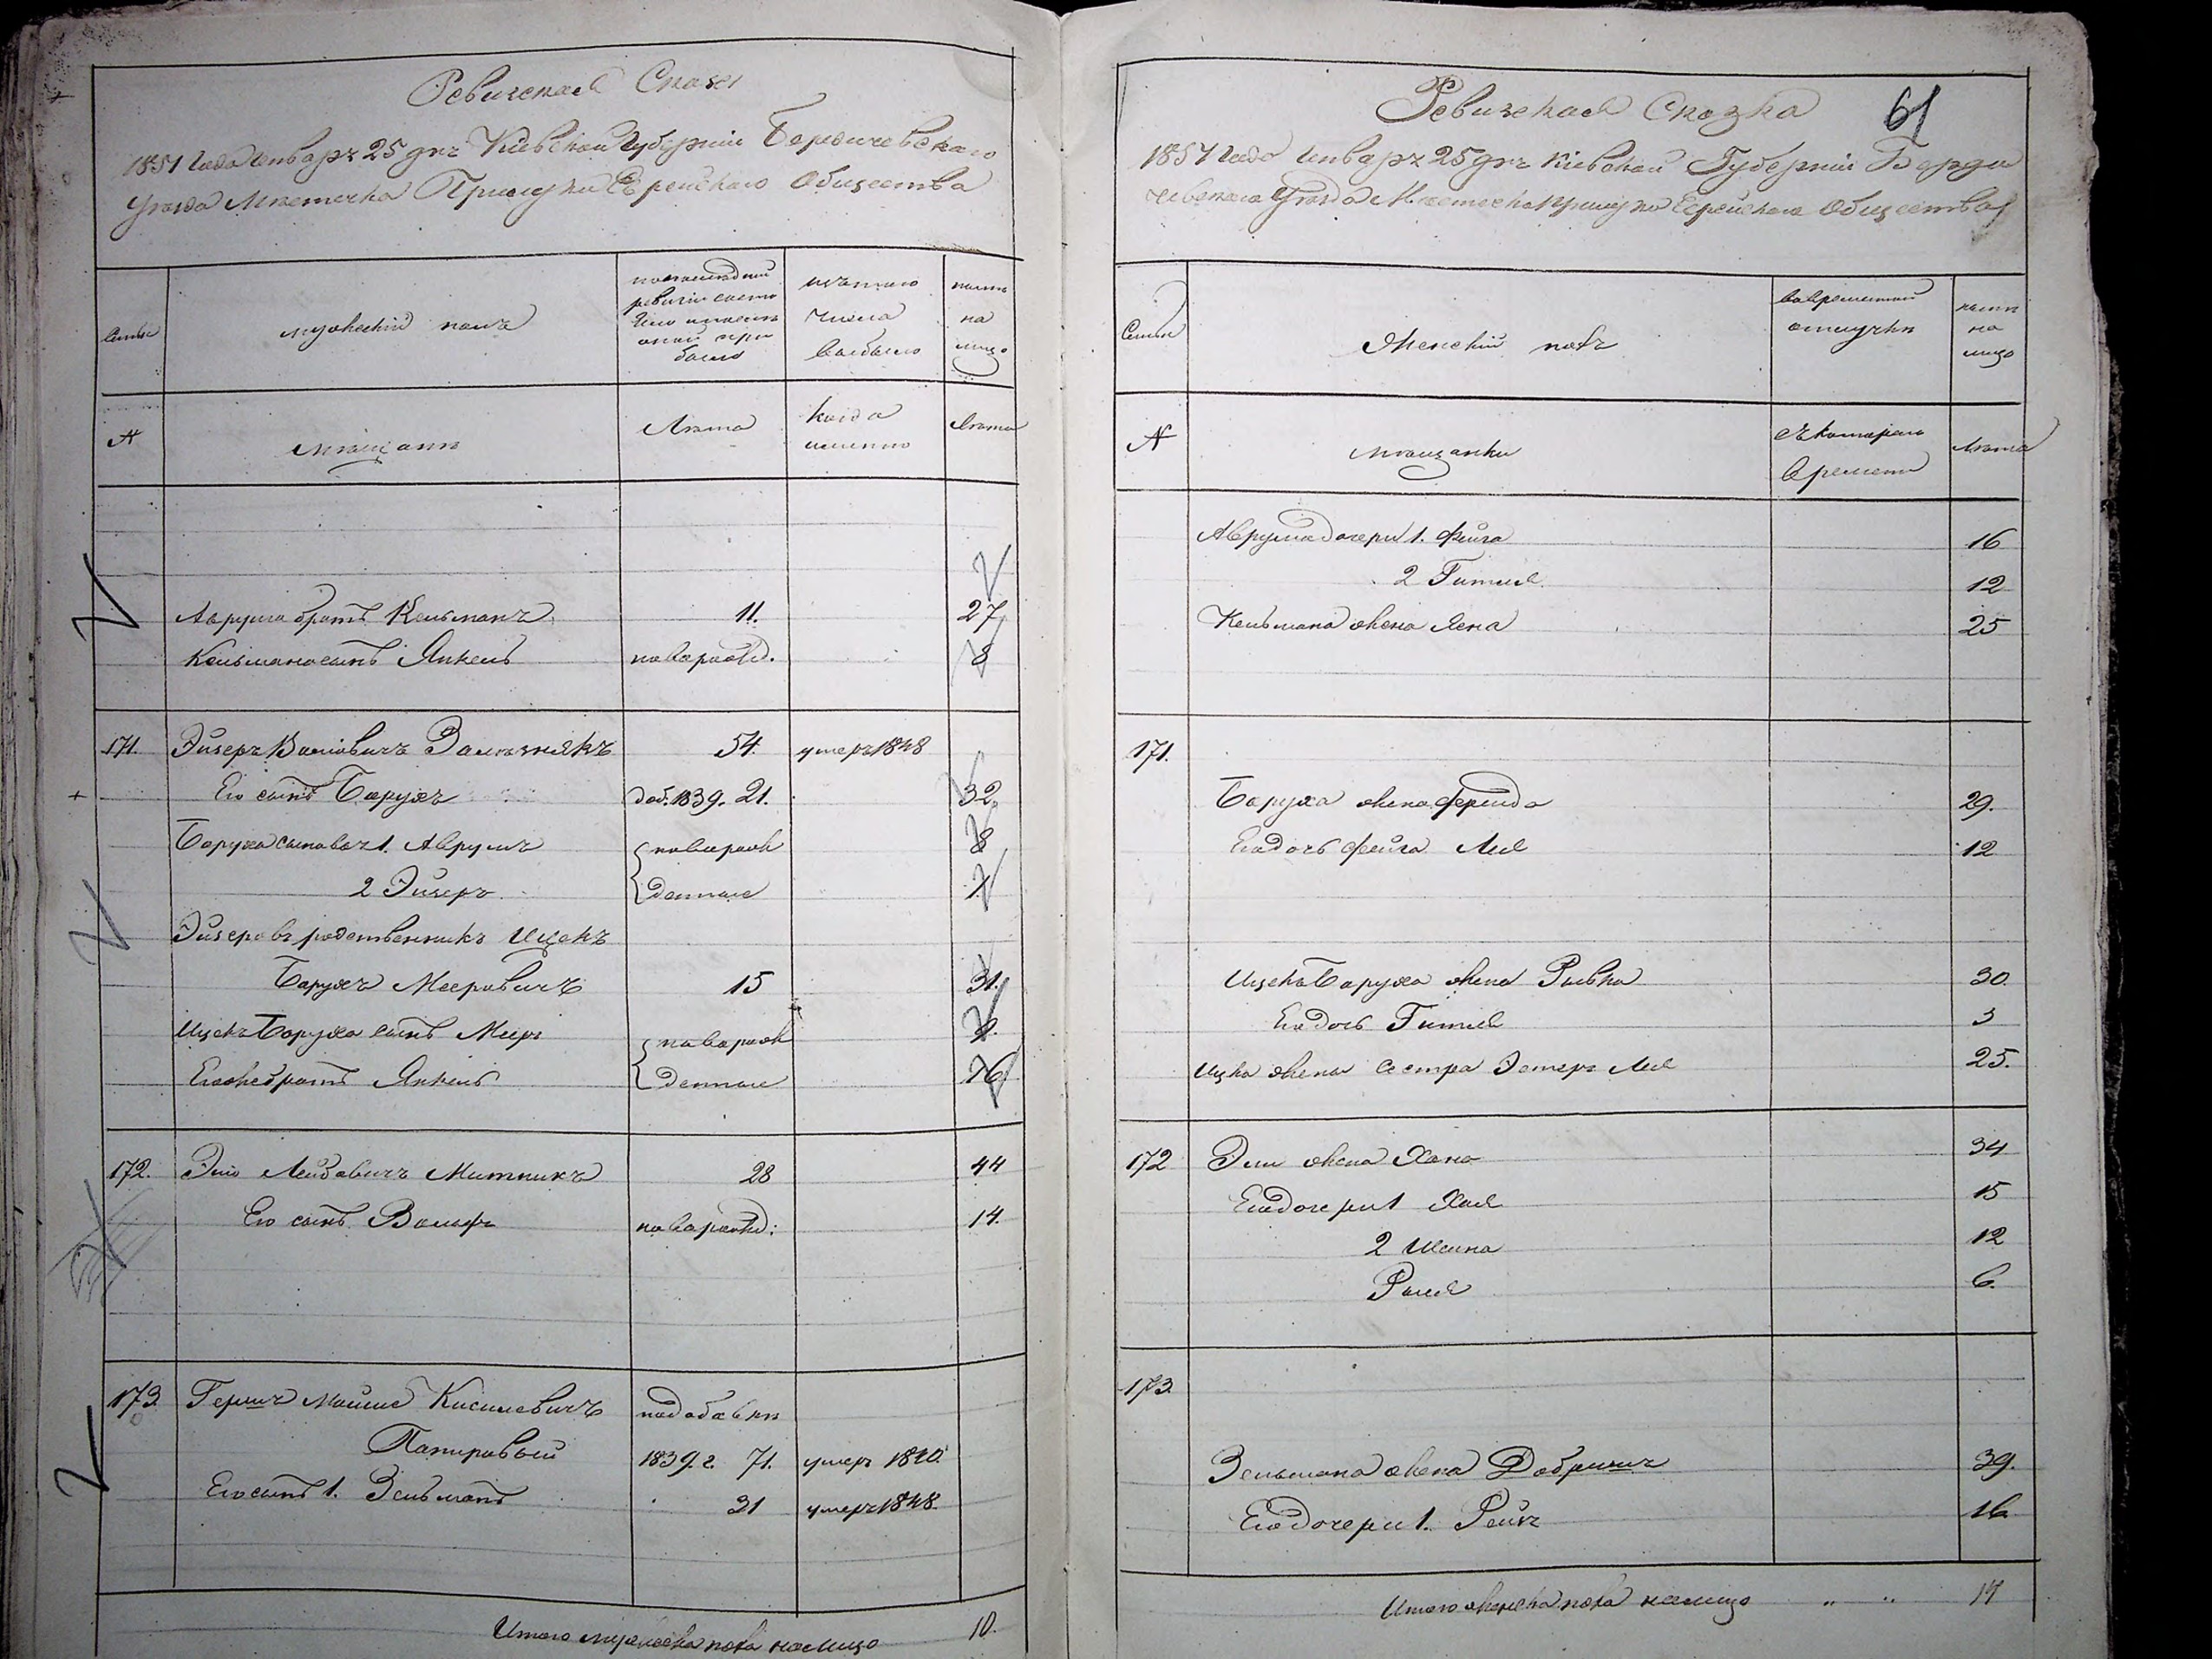 Ревизская Сказка
1851 Года Января 25 дня Киевской Губернии Бердичевского
Уезда Местечка Прилуки Еврейского Общества
Семьи
мужеский полъ
по последней ревизии состояло и после оной прибыло
изъ того числа выбыло
ныне на лицо
№
мещане
Лета
когда именно
Лета
Аврума братъ Кельманъ 11. 27
Кельмана сынъ Янкель новорожд. 8
171. Эйзеръ Вольковичъ Зализнякъ 54. умеръ 1848
Его сынъ Барухъ доб. 1839. 21. 32.
Баруха сыновья 1. Аврумъ новорож 8
2 Эйзеръ денные 1.
Эйзеровъ родственникъ Ицекъ
Барухъ Мееровичъ 15 31.
Ицекъ Баруха сынъ Меер новорож
Его же братъ Янкель денные 16
172. Элио Лейбовичъ Митникъ 28 44
Его сынъ Вольфъ новорожд: 14.
173. Гершъ Мошко Кисилевичъ по добавки
Папировый 1839 г. 71. умеръ 1840.
Его сынъ 1. Зельманъ 31 умеръ 1848.
Итого мужеска пола на лицо 10.
61
Ревизская Сказка
1851 Года Января 25 дня Киевской Губернии Берди
чевского Уезда Местечка Прилуки Еврейского Общества
Семьи
Женский полъ
во временной отлучке
ныне на лицо
№
мещанки
съ которого времени
Лета
Аврума дочери 1. Фейга 16
2 Гитля 12
Кельмана жена Лена 25
171.
Баруха жена Фрейда 29.
Ея дочь Фейга Лея 12
Ицека Баруха жена Рывка 30.
Ея дочь Гитля 3
Ицка жены сестра Эстеръ Лея 25.
172 Элии жена Хана 34
Ея дочери 1 Хая 15
2 Шейна 12
Рыся 6.
173.
Зельмана жена Добришъ 39.
Ея дочери 1. Рейза 16
Итого женска пола на лицо " " 14